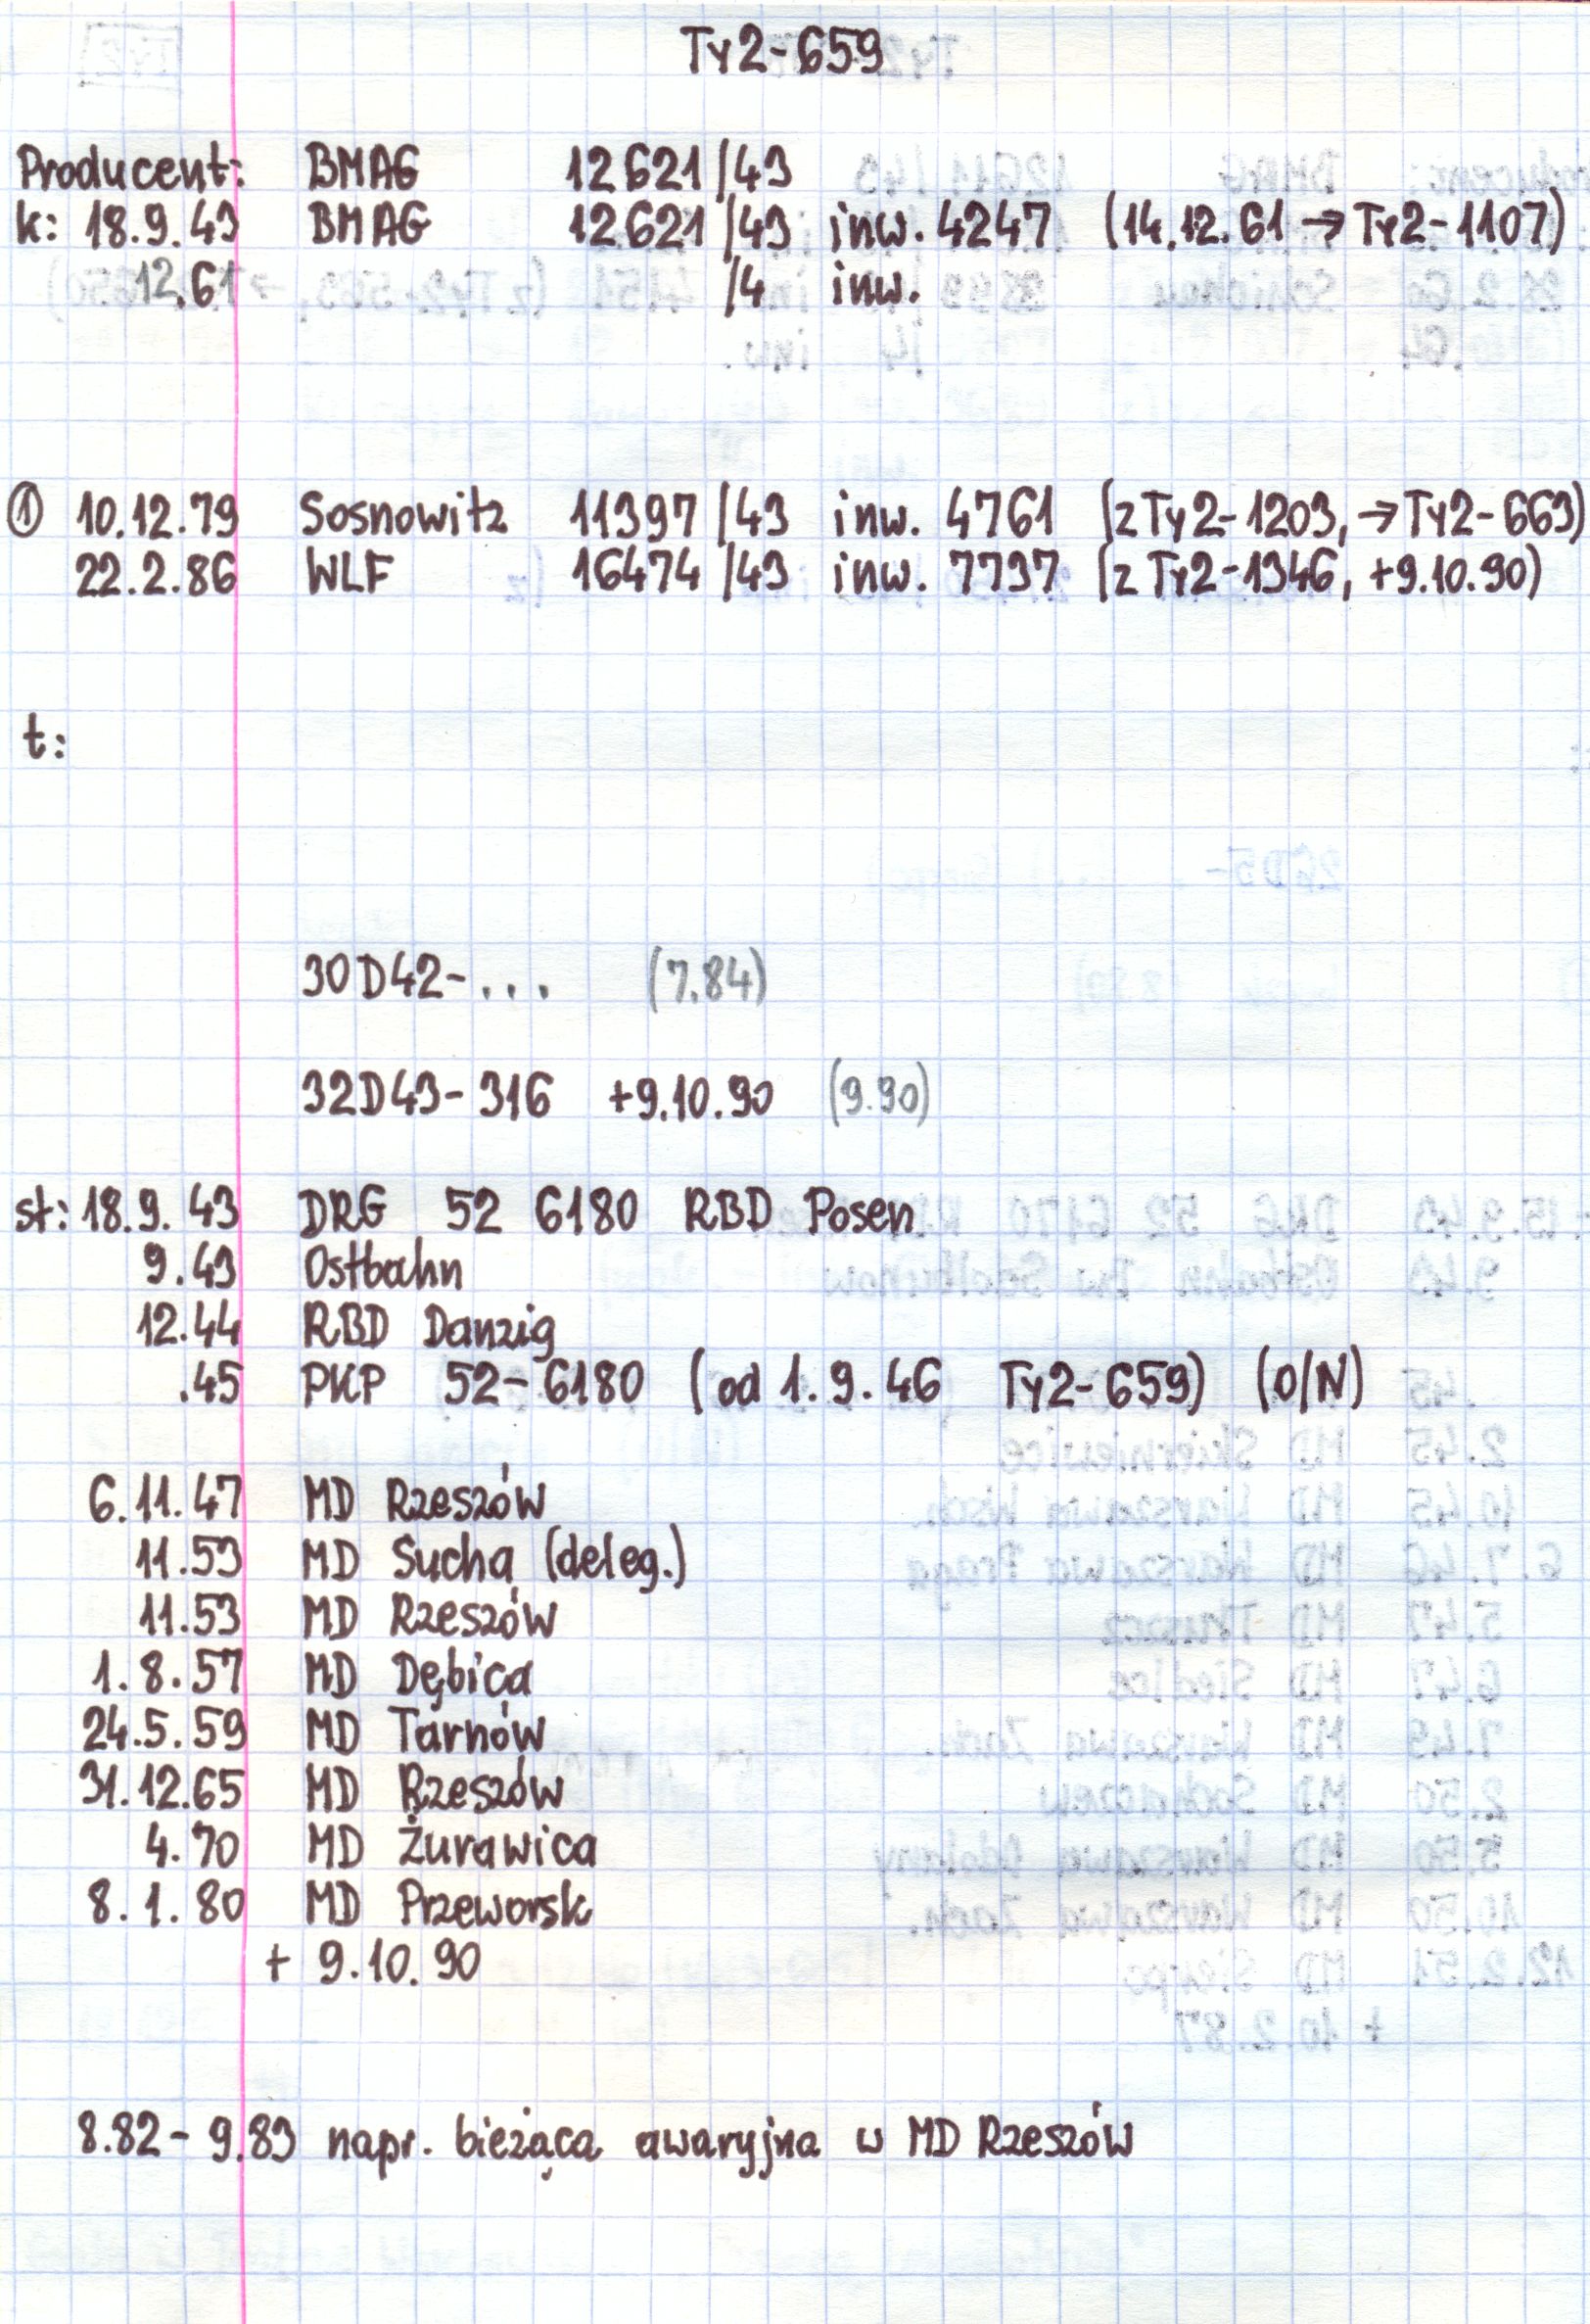 Ty2-659
Producent: BMAG 12621/43
k: 18.9.43 BMAG 12621/43 inw. 4247 (14.12.61 → Ty2-1107)
12.61 /4 inw.
① 10.12.79 Sosnowitz 11397/43 inw. 4761 (z Ty2-1203, → Ty2-663)
22.2.86 WLF 16474/43 inw. 7737 (z Ty2-1346, +9.10.90)
t:
30D42-... (7.84)
32D43-316 +9.10.90 (9.90)
st: 18.9.43 DRG 52 6180 RBD Posen
9.43 Ostbahn
12.44 RBD Danzig
.45 PKP 52-6180 (od 1.9.46 Ty2-659) (O/N)
6.11.47 MD Rzeszów
11.53 MD Sucha (deleg.)
11.53 MD Rzeszów
1.8.57 MD Dębica
24.5.59 MD Tarnów
31.12.65 MD Rzeszów
4.70 MD Żurawica
8.1.80 MD Przeworsk
+ 9.10.90
8.82 - 9.83 napr. bieżąca awaryjna w MD Rzeszów